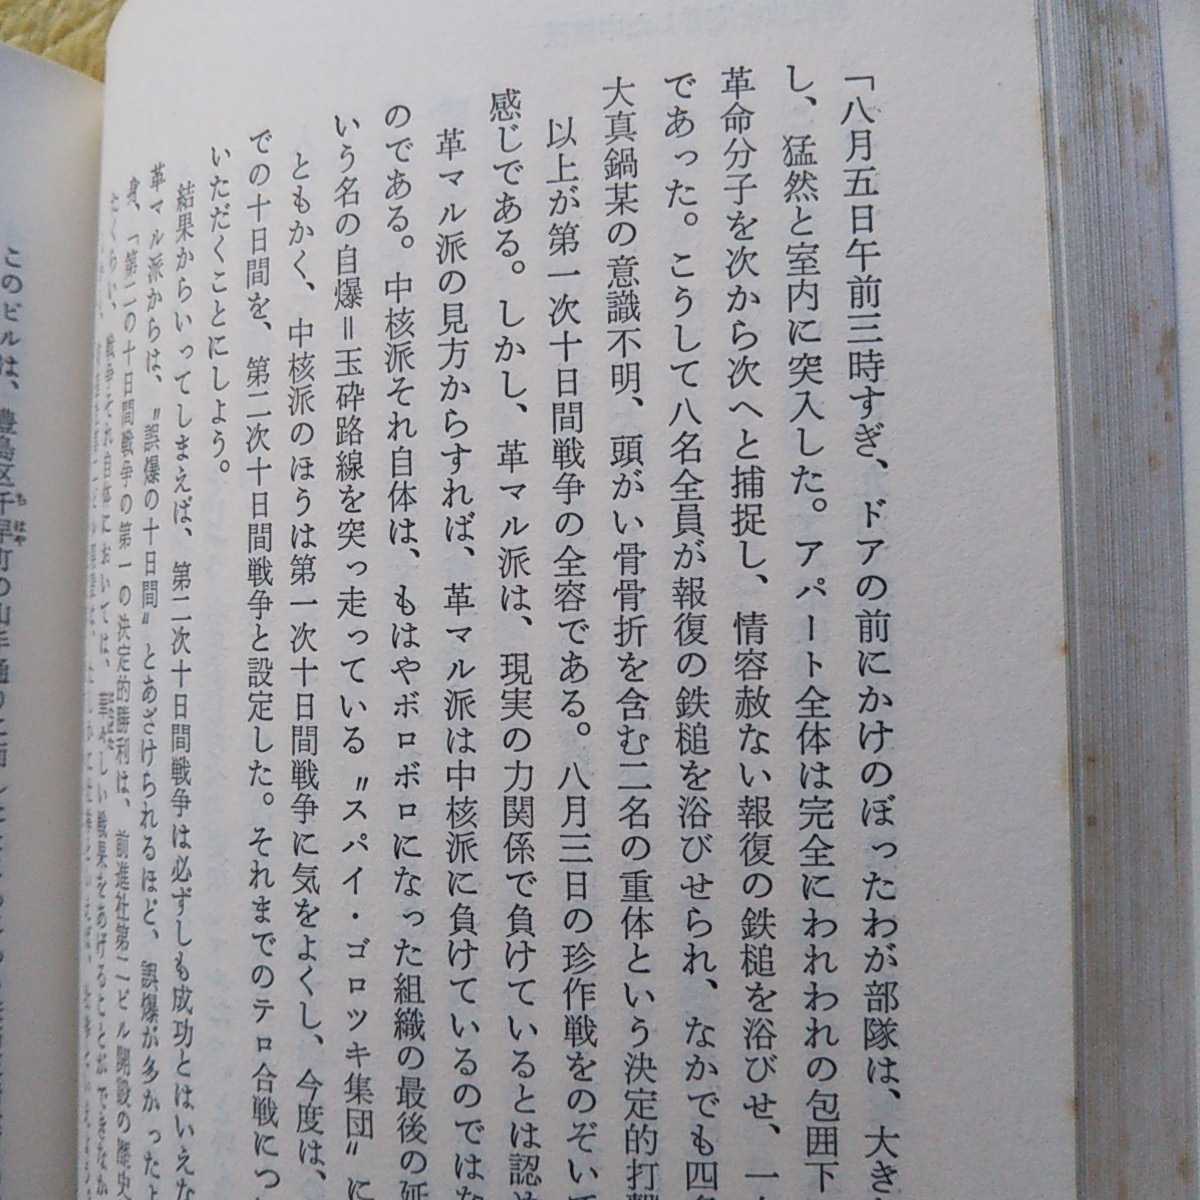 「八月五日午前三時すぎ、ドアの前にかけのぼったわが部隊は、大き
し、猛然と室内に突入した。アパート全体は完全にわれわれの包囲下
革命分子を次から次へと捕捉し、情容赦ない報復の鉄槌を浴びせ、一
であった。こうして八名全員が報復の鉄槌を浴びせられ、なかでも四名
大真鍋某の意識不明、頭がい骨骨折を含む二名の重体という決定的打撃
以上が第一次十日間戦争の全容である。八月三日の珍作戦をのぞいて
感じである。しかし、革マル派は、現実の力関係で負けているとは認め
革マル派の見方からすれば、革マル派は中核派に負けているのではな
のである。中核派それ自体は、もはやボロボロになった組織の最後の延
いう名の自爆＝玉砕路線を突っ走っている〝スパイ・ゴロツキ集団〟に
ともかく、中核派のほうは第一次十日間戦争に気をよくし、今度は、
での十日間を、第二次十日間戦争と設定した。それまでのテロ合戦につ
いただくことにしよう。
結果からいってしまえば、第二次十日間戦争は必ずしも成功とはいえな
革マル派からは、〝誤爆の十日間〟とあざけられるほど、誤爆が多かったよ
身、「第二の十日間戦争の第一の決定的勝利は、前進社第二ビル開設の歴史
戦争それ自体においては、華々しい戦果をあげることができなか
このビルは、豊島区千早町の山手通りに面した